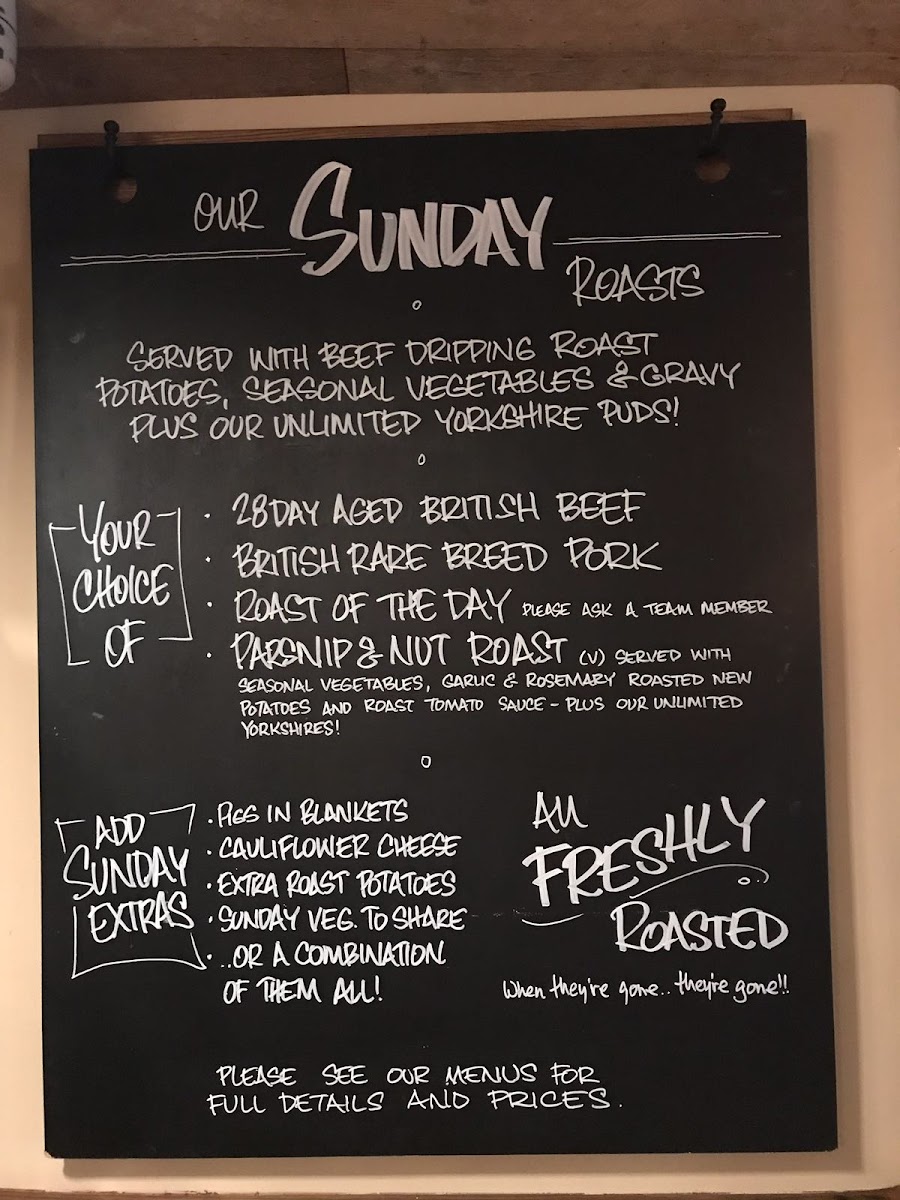 OUR SUNDAY
ROASTS
SERVED WITH BEEF DRIPPING ROAST
POTATOES, SEASONAL VEGETABLES & GRAVY
PLUS OUR UNLIMITED YORKSHIRE PUDS!
YOUR
CHOICE
OF
· 28 DAY AGED BRITISH BEEF
· BRITISH RARE BREED PORK
· ROAST OF THE DAY PLEASE ASK A TEAM MEMBER
· PARSNIP & NUT ROAST (V) SERVED WITH
SEASONAL VEGETABLES, GARLIC & ROSEMARY ROASTED NEW
POTATOES AND ROAST TOMATO SAUCE - PLUS OUR UNLIMITED
YORKSHIRES!
ADD
SUNDAY
EXTRAS
· PIGS IN BLANKETS
· CAULIFLOWER CHEESE
· EXTRA ROAST POTATOES
· SUNDAY VEG. TO SHARE
· ..OR A COMBINATION
OF THEM ALL!
All
FRESHLY
ROASTED
When they're gone.. they're gone!!
PLEASE SEE OUR MENUS FOR
FULL DETAILS AND PRICES.